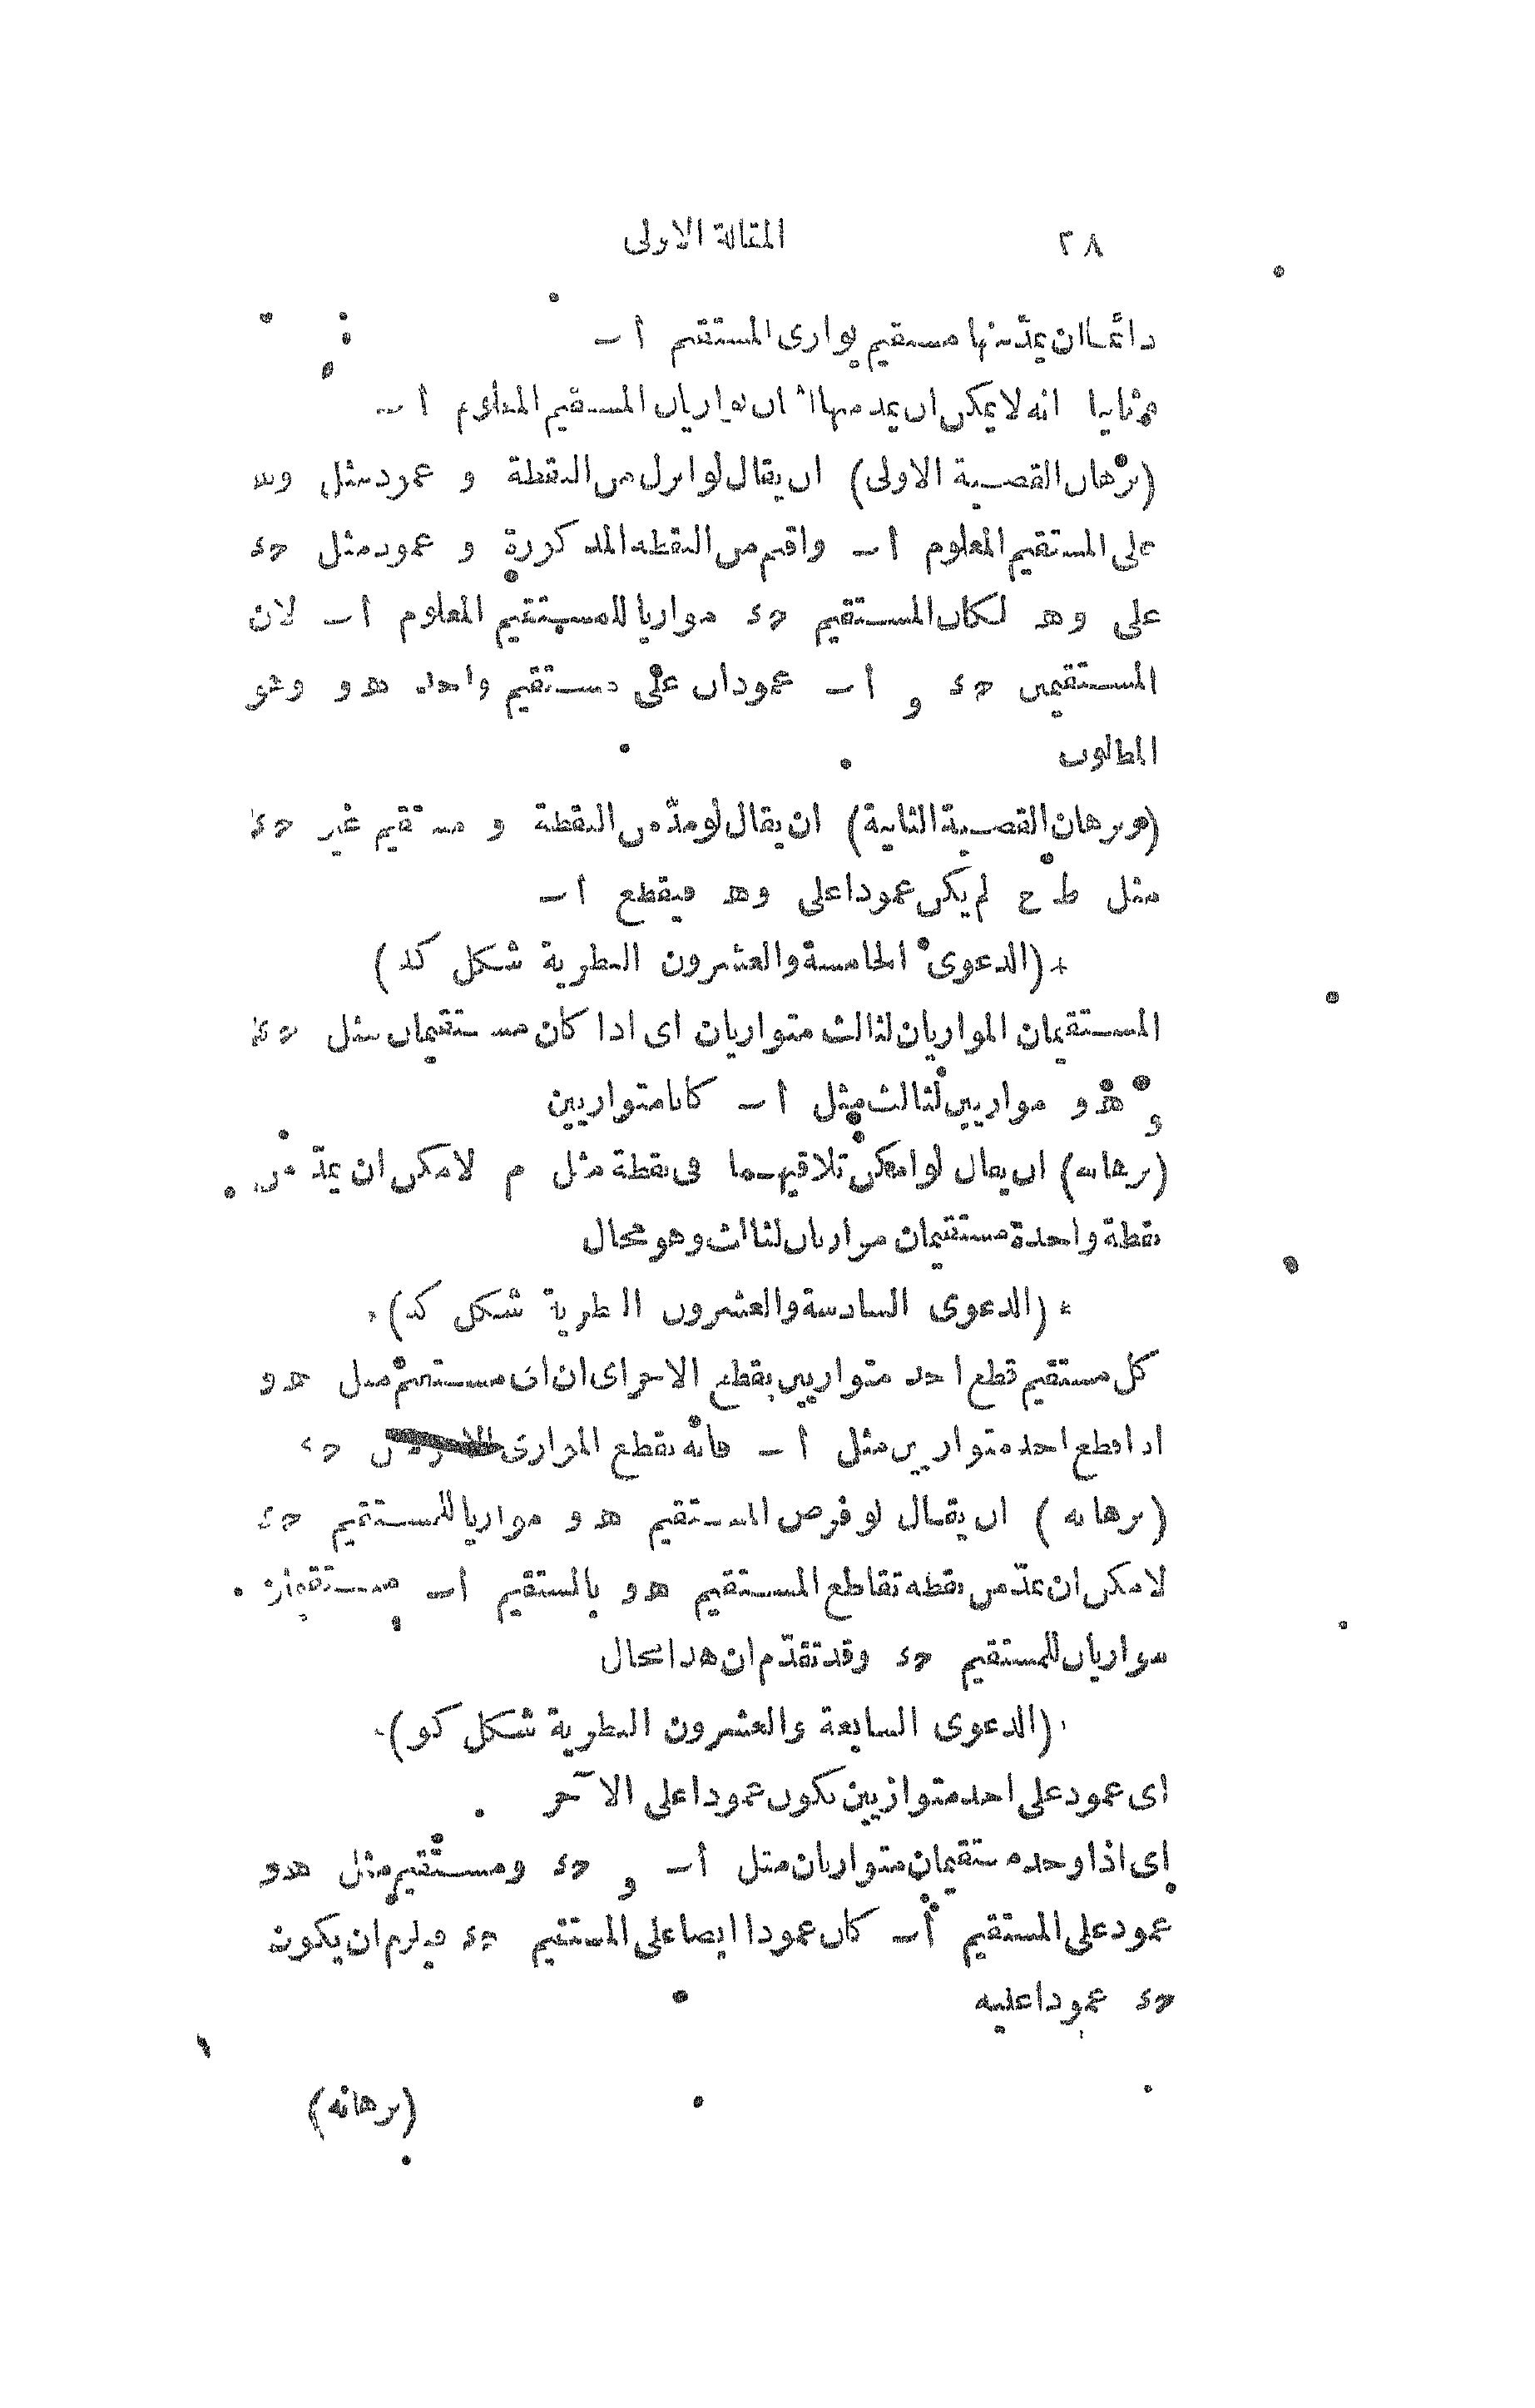 ٢٨ المقالة الاولى
دائما ان يمدّ منها مستقيم يوازى المستقيم أ ب
وثانيا انه لا يمكن ان يمد منها اثنان يوازيان المستقيم المعلوم أ ب
(برهان القضية الاولى) ان يقال لو انزل من النقطة و عمود مثل وه
على المستقيم المعلوم أ ب واقيم من النقطة المذكورة و عمود مثل حء
على وه لكان المستقيم حء موازيا للمستقيم المعلوم أ ب لان
المستقيمين حء و أ ب عمودان على مستقيم واحد هو وهو
المطلوب
(وبرهان القضية الثانية) ان يقال لو مدّ من النقطة و مستقيم غير حء
مثل ط ح لم يكن عمودا على وه فيقطع أ ب
(الدعوى الخامسة والعشرون النظرية شكل كد)
المستقيمان الموازيان لثالث متوازيان اى اذا كان مستقيمان مثل حء
و هو موازيين لثالث مثل أ ب كانا متوازيين
(برهانه) ان يقال لو امكن تلاقيهما فى نقطة مثل م لامكن ان يمدّ من
نقطة واحدة مستقيمان موازيان لثالث وهو محال
* (الدعوى السادسة والعشرون النظرية شكل كد)
كل مستقيم قطع احد متوازيين يقطع الاخر اى ان اى مستقيم مثل هو
اذا قطع احد متوازيين مثل أ ب فانه يقطع الموازى حء
(برهانه) ان يقال لو فرض المستقيم هو موازيا للمستقيم حء
لامكن ان يمدّ من نقطة تقاطع المستقيم هو بالمستقيم أ ب مستقيمان
موازيان للمستقيم حء وقد تقدّم ان هذا محال
(الدعوى السابعة والعشرون النظرية شكل كو)
اى عمود على احد متوازيين يكون عمودا على الآخر
اى اذا وجد مستقيمان متوازيان مثل أ ب و حء ومستقيم مثل هو
عمود على المستقيم أ ب كان عمودا ايضا على المستقيم حء فيلزم ان يكون
حء عمودا عليه
(برهانه)